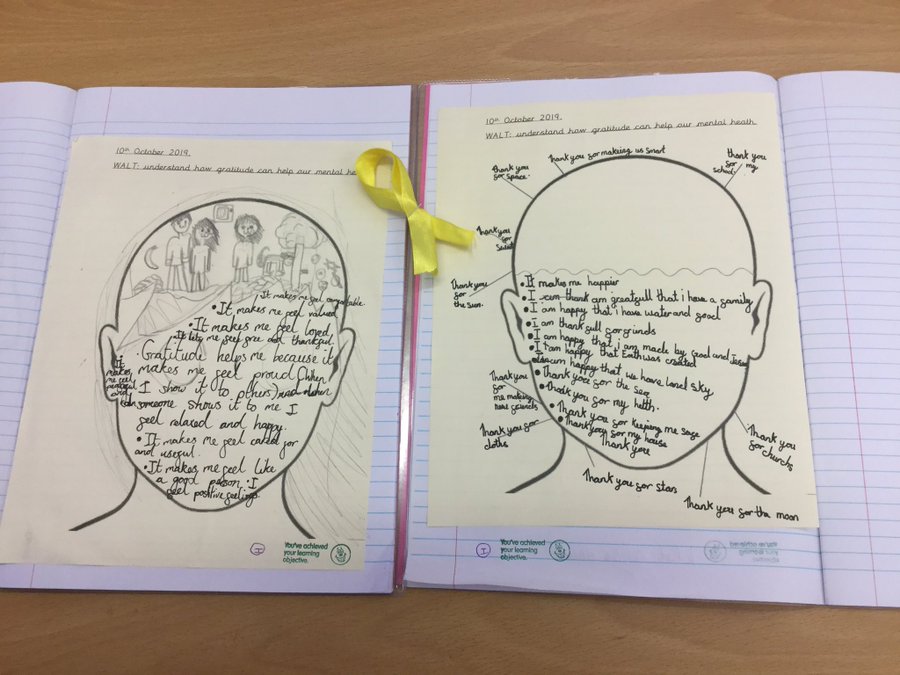 10th October 2019.
WALT: understand how gratitude can help our mental he
It makes me feel comfortable.
• It makes me feel valued
• It makes me feel loved
It lets me feel free and thankful
• Gratitude helps me because it
makes me feel proud (when
I show it to others)
someone shows it to me I
feel relaxed and happy.
• It makes me feel cared for
and useful.
• It makes me feel like
a good person • I
feel positive feelings
It
makes
me feel
and
You've achieved
your learning
objective.
10th October 2019.
WALT: understand how gratitude can help our mental heath
Thank you
for space.
Thank you for making us smart
thank you
for my
school.
Thank you
for
Thank you
for
the sun.
• It makes me happier
• I am greatfull that i have a family
• I am happy that i have water and food
• I am thankfull for frinds
• I am happy that I am made by God and
• I am happy that Eath was created
am happy that we have land sky
• Thank you for the sea
• thank you for my helth.
• Thank you for keeping me safe
• Thank you for my house
Thank you
Thank
you
for
me making
new frinends
Thank you for
cloths
Thank you
for churchs
Thank you for stars
Thank you for the moon
You've achieved
your learning
objective.